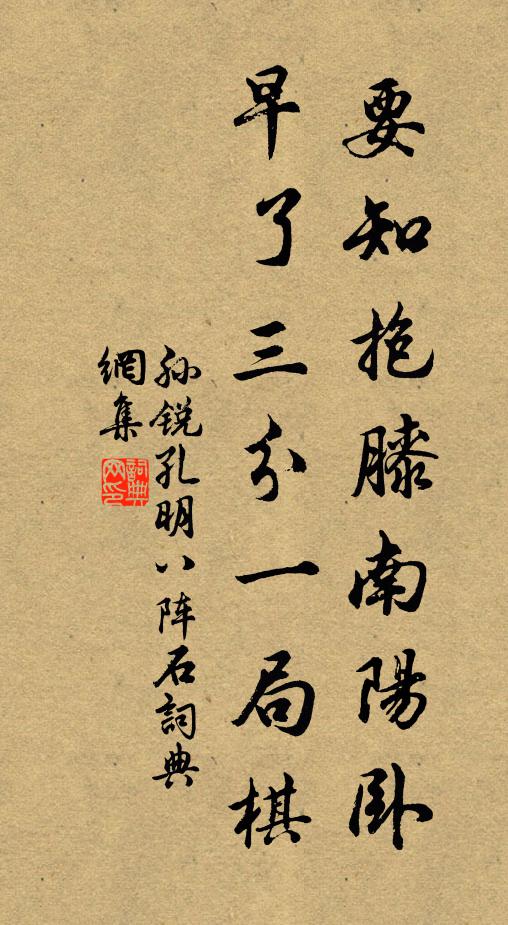 要知抱膝南陽卧
早了三分一局棋
孙锐孔明八阵石詞典
網集
詞典
网印